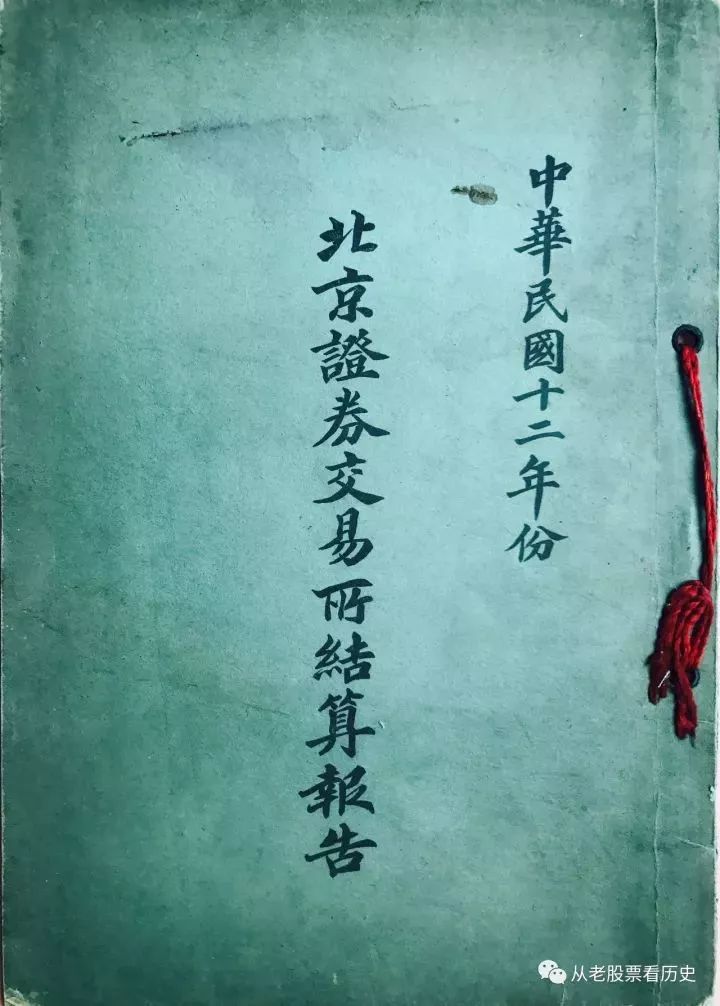 中華民國十二年份
北京證券交易所結算報告
从老股票看历史